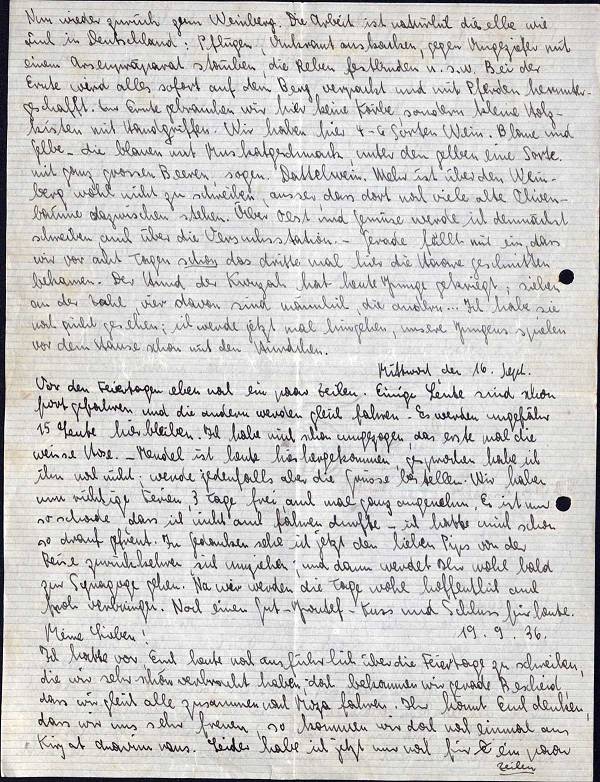 Nun wieder zurück zum Weinberg. Die Arbeit ist natürlich dieselbe wie
auch in Deutschland: Pflügen, Unkraut aushacken, gegen Ungeziefer mit
einem Arsenpräparat stäuben, die Reben festbinden u.s.w. Bei der
Ernte wird alles sofort auf dem Berg verpackt und mit Pferden herunter-
geschafft. Zur Ernte gebrauchen wir hier keine Körbe, sondern kleine Holz-
kisten mit Handgriffen. Wir haben hier 4-6 Sorten Wein. Blaue und
Gelbe - die blauen mit Muskatgeschmack, unter den gelben eine Sorte
mit ganz grossen Beeren, sogen. Dattelwein. Mehr ist über den Wein-
berg wohl nicht zu schreiben, ausser dass dort noch viele alte Oliven-
bäume dazwischen stehen. Über Obst und Gemüse werde ich demnächst
schreiben auch über die Versuchsstation. - Gerade fällt mir ein, dass
wir vor acht Tagen schon das dritte mal hier die Haare geschnitten
bekamen. Der Hund der Kwuzah hat heute Junge gekriegt; sieben
an der Zahl, vier davon sind männlich, die andern... Ich habe sie
noch nicht gesehen; ich werde jetzt mal hingehen, unsere Jungens spielen
vor dem Hause schon mit den Hündchen.
Mittwoch, den 16. Sept.
Vor den Feiertagen eben noch ein paar Zeilen. Einige Leute sind schon
fortgefahren und die andern werden gleich fahren - Es werden ungefähr
15 Leute hierbleiben. Ich habe mich schon umgezogen das erste mal die
weisse Hose. - Mendel ist heute hierhergekommen, gesprochen habe ich
ihn noch nicht; werde jedenfalls aber die Grüsse bestellen. Wir haben
nun richtige Ferien, 3 Tage frei auch mal ganz angenehm. Es ist nur
so schade, dass ich nicht auch fahren durfte - ich hatte mich schon
so drauf gefreut. In Gedanken sehe ich jetzt den lieben Pips von der
Reise zurückkehren sich umziehen; und dann werdet Ihr wohl bald
zur Synagoge gehen. Na wir werden die Tage wohl hoffentlich auch
froh verbringen. Noch einen Gut-Jontef-Kuss und Schluss für heute.
Meine Lieben! 19.9.36.
Ich hatte vor Euch heute noch ausführlich über die Feiertage zu schreiben,
die wir sehr schön verbracht haben; doch bekommen wir gerade Bescheid
dass wir gleich alle zusammen nach Moza fahren. Ihr könnt Euch denken,
dass wir uns sehr freuen, so kommen wir doch noch einmal aus
Kirjat Anavim raus. Leider habe ich jetzt nur noch für ein paar
Zeilen